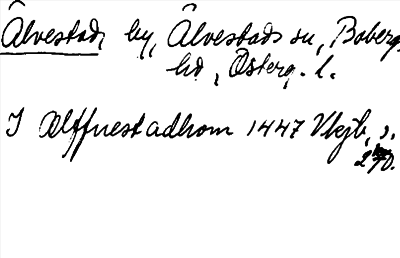 Älvestad, by, Älvestads sn, Boberg
hd, Österg. l.
I Alffuestadhom 1447 Vtejb, s.
290.